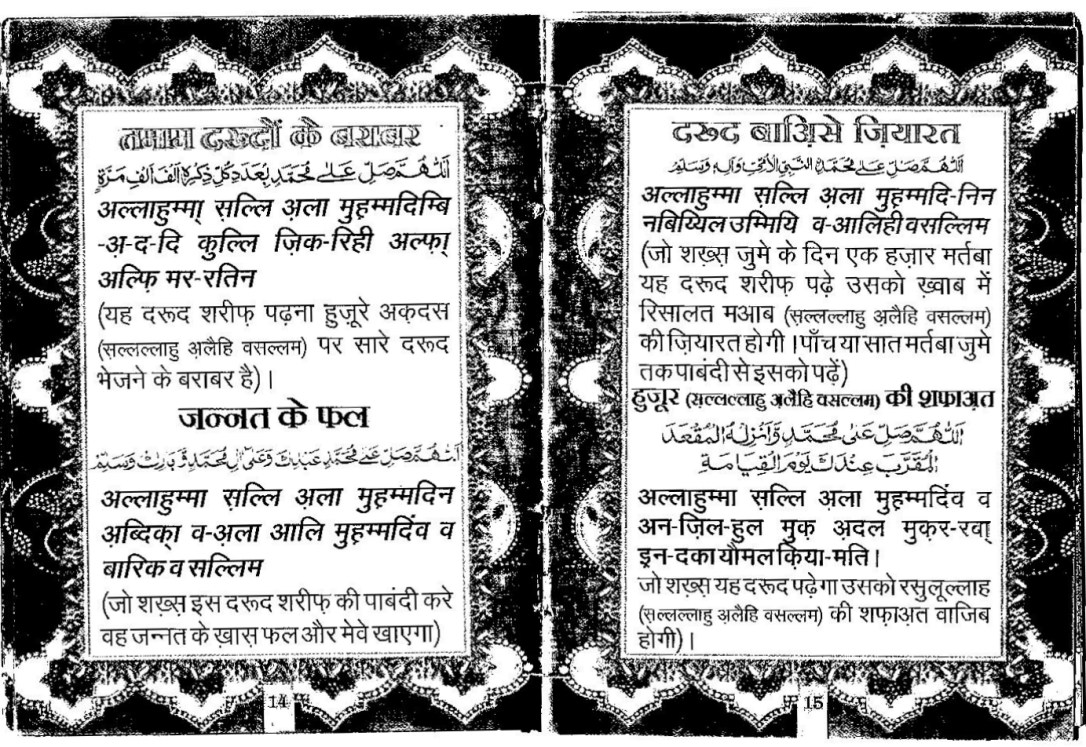 तमाम दरूदों के बराबर
اَللّٰهُمَّ صَلِّ عَلٰى مُحَمَّدٍ بِعَدَدِ كُلِّ ذِكْرِهٖ اَلْفَ اَلْفِ مَرَّةٍ
अल्लाहुम्मा् स़ल्लि अ़ला मुह़म्मदिम्बि
-अ़-द-दि कुल्लि ज़िक-रिही अल्फ़ा्
अल्फ़ि मर-रतिन
(यह दरूद शरीफ़ पढ़ना हुज़ूरे अक़दस
(स़ल्लल्लाहु अ़लैहि वसल्लम) पर सारे दरूद
भेजने के बराबर है)।
जन्नत के फल
اَللّٰهُمَّ صَلِّ عَلٰى مُحَمَّدٍ عَبْدِكَ وَعَلٰى اٰلِ مُحَمَّدٍ وَّبَارِكْ وَسَلِّمْ
अल्लाहुम्मा स़ल्लि अ़ला मुह़म्मदिन
अ़ब्दिका् व-अ़ला आलि मुह़म्मदिंव व
बारिक व सल्लिम
(जो शख़्स़ इस दरूद शरीफ़ की पाबंदी करे
वह जन्नत के ख़ास फल और मेवे खाएगा)
14
दरूद बाअ़िसे ज़ियारत
اَللّٰهُمَّ صَلِّ عَلٰى مُحَمَّدِنِ النَّبِيِّ الْاُمِّيِّ وَاٰلِهٖ وَسَلِّمْ
अल्लाहुम्मा स़ल्लि अ़ला मुह़म्मदि-निन
नबिय्यिल उम्मियि व-आलिही वसल्लिम
(जो शख़्स़ जुमे के दिन एक हज़ार मर्तबा
यह दरूद शरीफ़ पढ़े उसको ख़्वाब में
रिसालत मआब (स़ल्लल्लाहु अ़लैहि वसल्लम)
की ज़ियारत होगी।पाँच या सात मर्तबा जुमे
तक पाबंदी से इसको पढ़ें)
हुज़ूर (स़ल्लल्लाहु अ़लैहि वसल्लम) की शफ़ाअ़त
اَللّٰهُمَّ صَلِّ عَلٰى مُحَمَّدٍ وَّاَنْزِلْهُ الْمَقْعَدَ
الْمُقَرَّبَ عِنْدَكَ يَوْمَ الْقِيَامَةِ
अल्लाहुम्मा स़ल्लि अ़ला मुह़म्मदिंव व
अन-ज़िल-हुल मुक़ अ़दल मुक़र-रबा्
इ़न-दका यौमल क़िया-मति।
जो शख़्स़ यह दरूद पढ़ेगा उसको रसुलूल्लाह
(स़ल्लल्लाहु अ़लैहि वसल्लम) की शफ़ाअ़त वाजिब
होगी)।
15